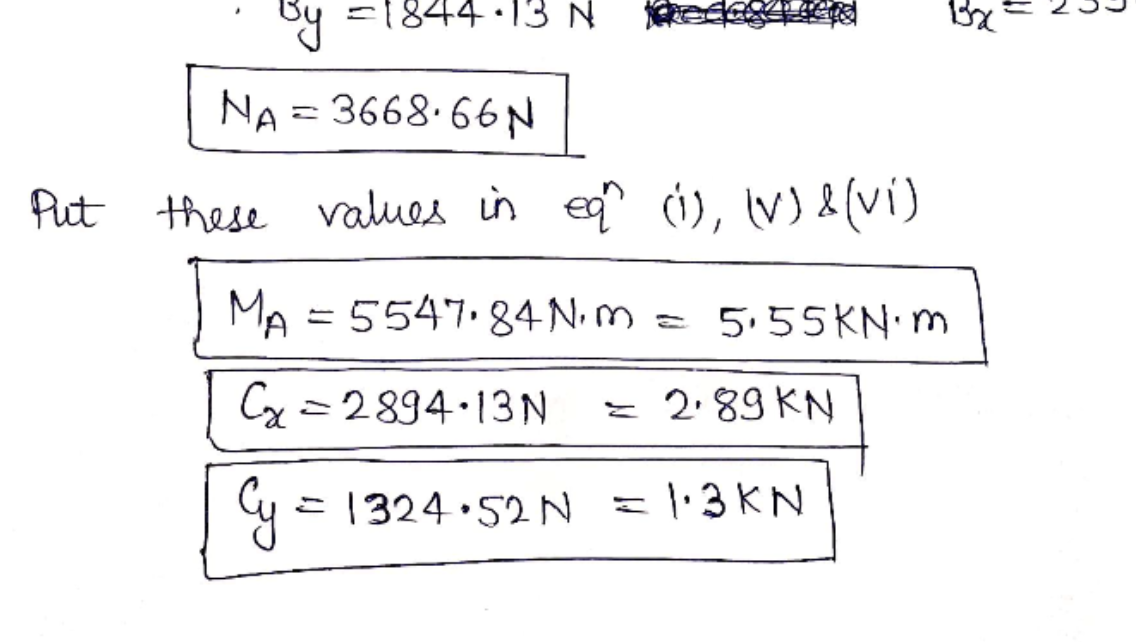 . By = 1844.13 N Bx = 239
NA = 3668.66N
Put these values in eqn (i), (v) & (vi)
MA = 5547.84 N.m = 5.55KN.m
Cx = 2894.13N = 2.89 KN
Cy = 1324.52 N = 1.3 KN